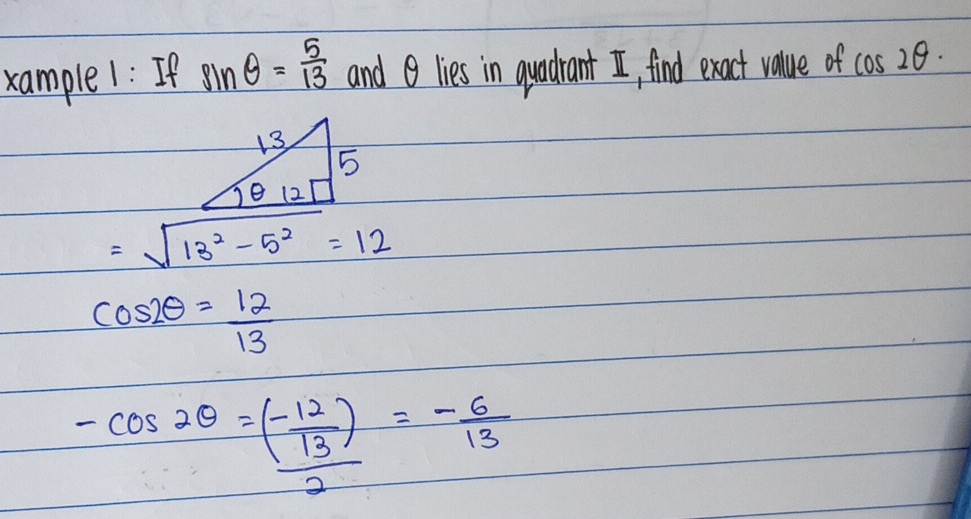 xample 1: If sin θ = 5/13 and θ lies in quadrant II, find exact value of cos 2θ.
13
5
θ 12
= √(13² - 5²) = 12
cos2θ = 12/13
- cos 2θ = (-12/13)/2 = -6/13